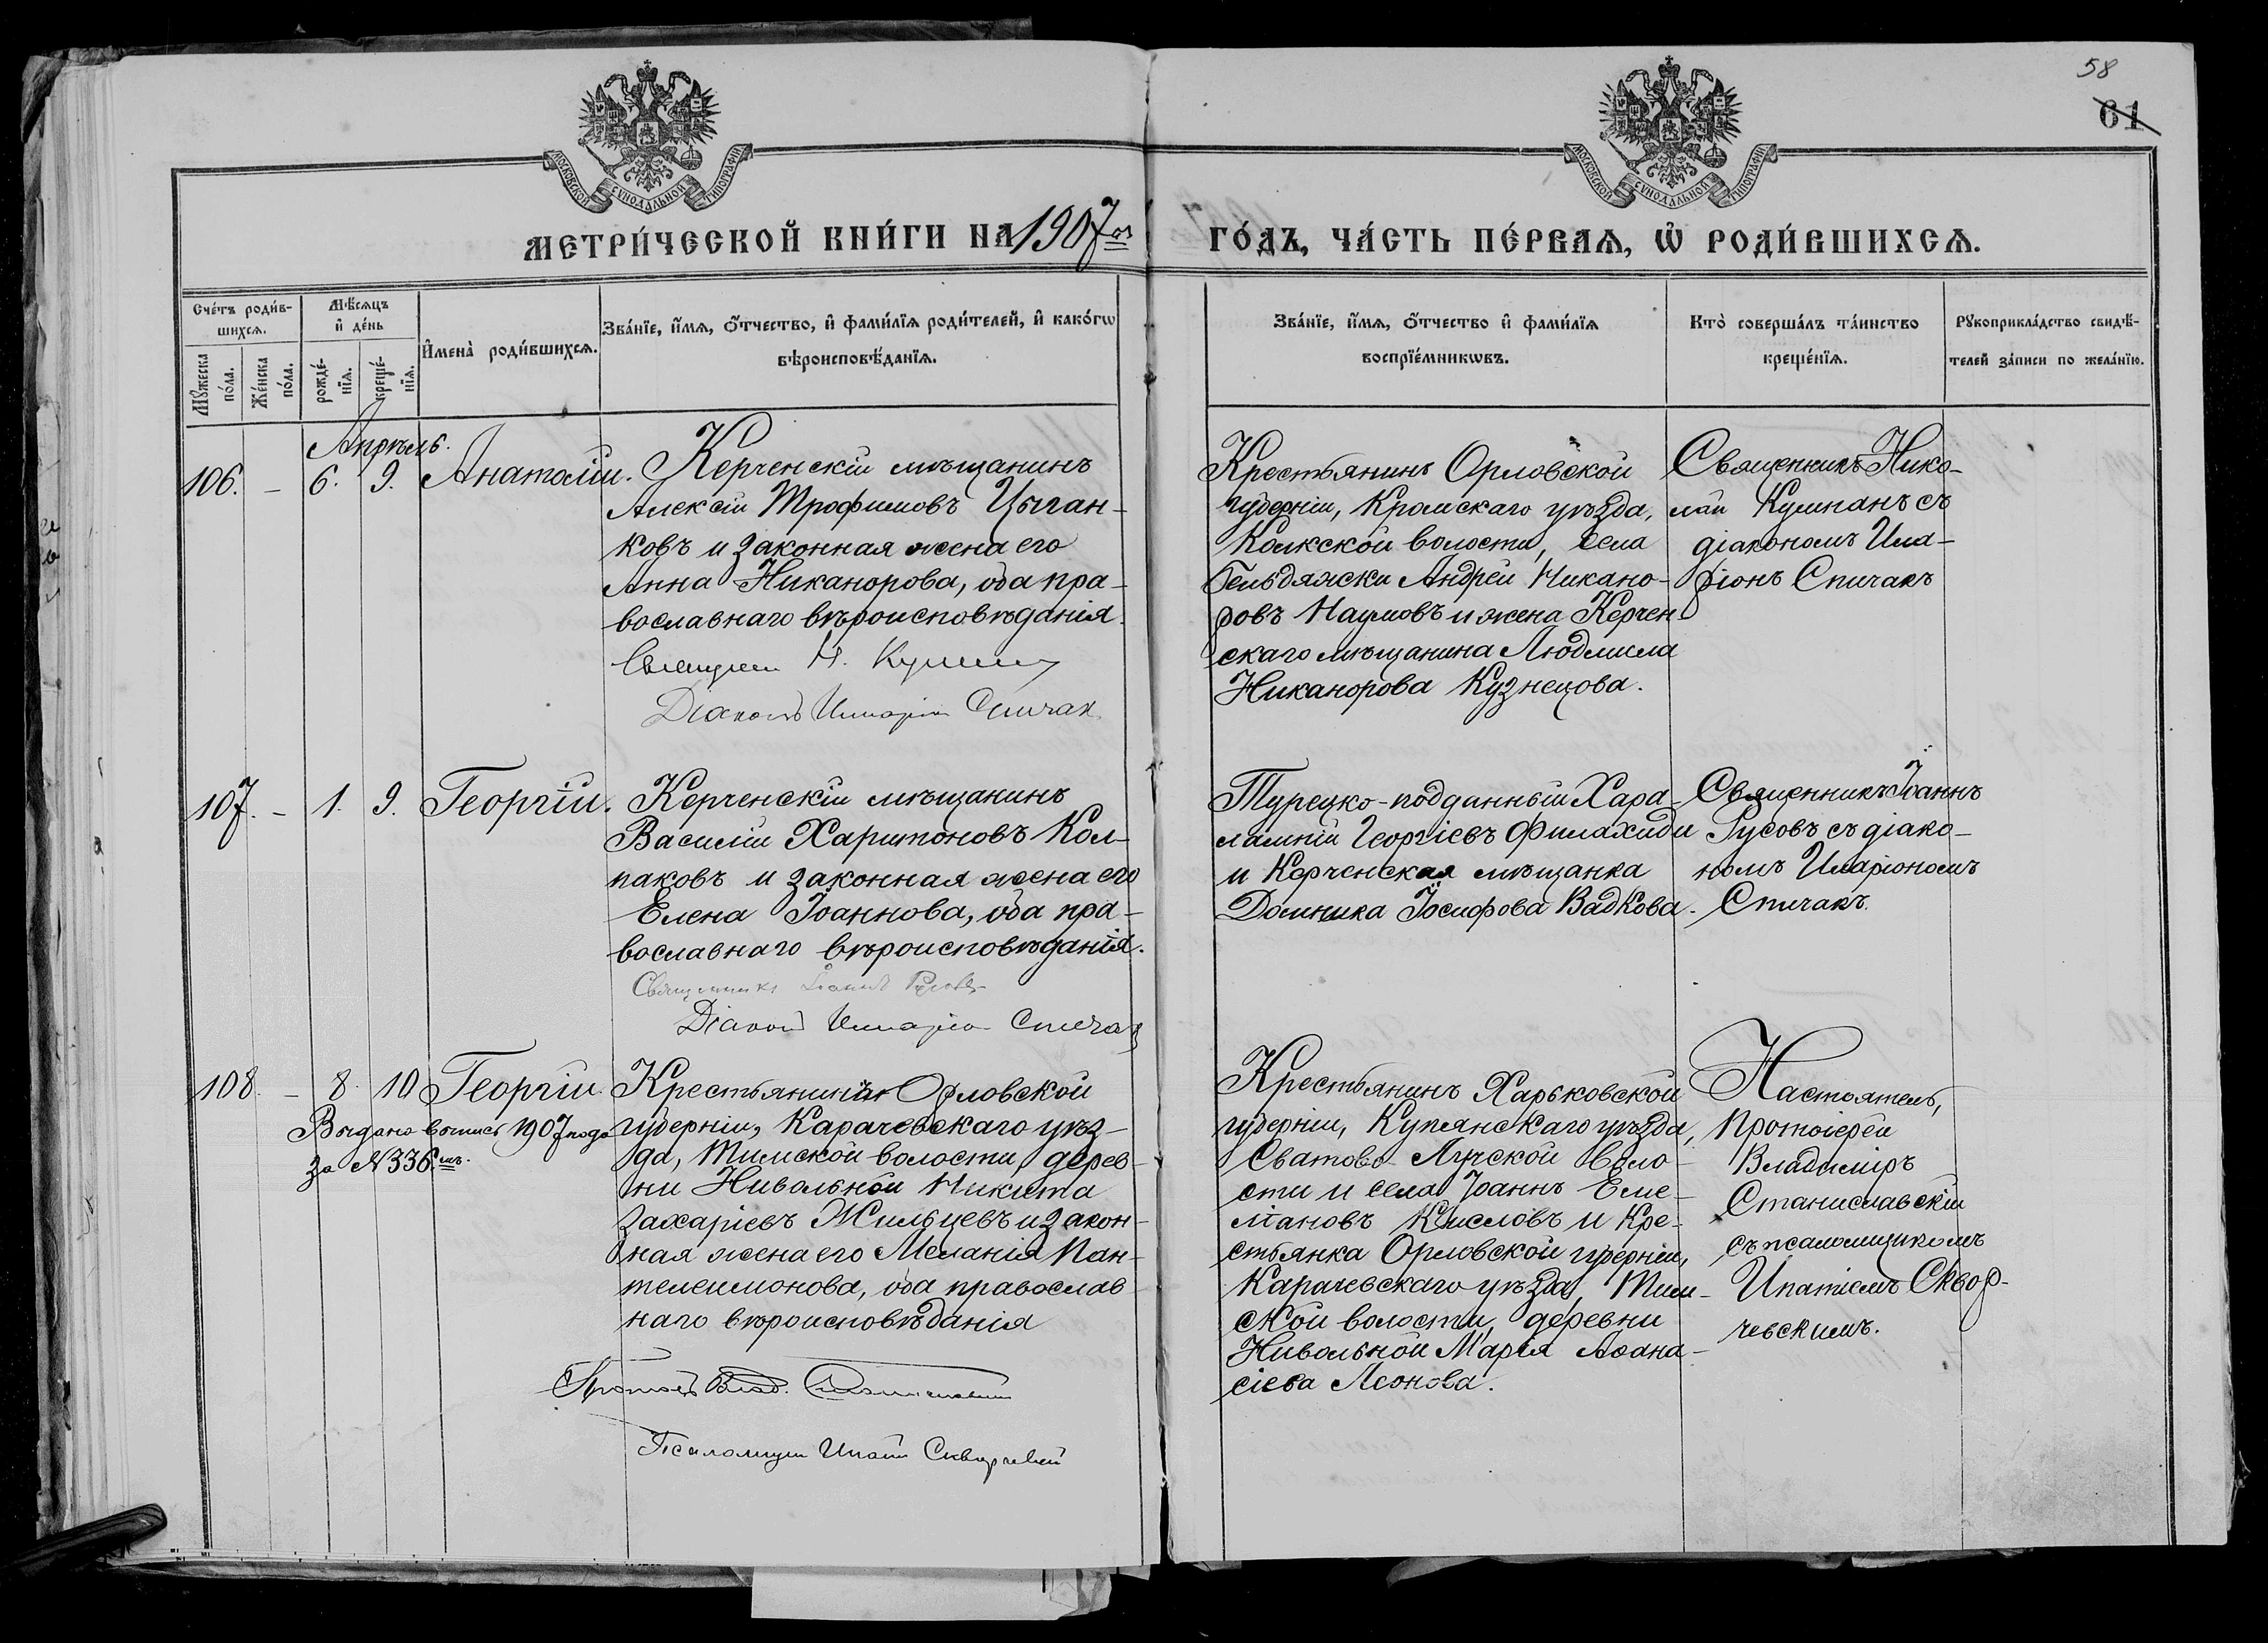 58
61
МОСКОВСКОЙ СѴНОДАЛЬНОЙ ТИПОГРАФІИ
МОСКОВСКОЙ СѴНОДАЛЬНОЙ ТИПОГРАФІИ
МЕТРИ́ЧЕСКОЙ КНИ́ГИ НА 1907 ой
ГО́ДЪ, ЧА́СТЬ ПЕ́РВАѦ, Ѡ҆ РОДИ́ВШИХСѦ.
Сче́тъ роди́в-
шихсѧ.
Мꙋжеска
по́ла.
Же́нска
по́ла.
Мѣ́сѧцъ
и҆ де́нь
рожде́-
нїѧ.
креще́-
нїѧ.
И҆мена̀ роди́вшихсѧ.
Зва́нїе, и҆́мѧ, ѻ҆́тчество, и҆ фами́лїѧ роди́телей, и҆ како́гѡ
вѣроисповѣ́данїѧ.
Зва́нїе, и҆́мѧ, ѻ҆́тчество и҆ фами́лїѧ
воспрїе́мникѡвъ.
Кто̀ соверша́лъ та́инство
креще́нїѧ.
Рꙋкоприкла́дство свидѣ́-
телей за́писи по жела́нїю.
Апрѣль.
106. – 6. 9. Анатолій.
Керченскій мѣщанинъ
Алексій Трофимовъ Цыган-
ковъ и законная жена его
Анна Никанорова, оба пра-
вославнаго вѣроисповѣданія.
Священ Н. Кумпан
Діаконъ Иларіон Спичак
Крестьянинъ Орловской
губерніи, Кромскаго уѣзда,
Колкской волости, села
Гельдяжски Андрей Никано-
ровъ Наумовъ и жена Керчен-
скаго мѣщанина Людмила
Никанорова Кузнецова.
Священникъ Нико-
лай Кумпанъ съ
діакономъ Ила-
ріонъ Спичакъ
107. – 1. 9. Георгій.
Керченскій мѣщанинъ
Василій Харитоновъ Кол-
паковъ и законная жена его
Елена Іоаннова, оба пра-
вославнаго вѣроисповѣданія.
Священникъ Іоаннъ Русовъ
Діакон Иларіо Спичак
Турецко-подданный Хара-
лампій Георгіевъ Филахиди
и Керченская мѣщанка
Домника Іосифова Вадкова.
Священникъ Іоаннъ
Русовъ съ діако-
номъ Иларіономъ
Спичакъ.
108. – 8. 10 Георгій.
Выдана выпись 1907 года
за № 336 мъ.
Крестьянинъ Орловской
губерніи, Карачевскаго уѣз-
да, Тимской волости, дерев-
ни Нивольной Никита
Захаріевъ Жильцевъ и закон-
ная жена его Меланія Пан-
телеимонова, оба православ-
наго вѣроисповѣданія
Протоіер Влад. Станиславскій
Псаломщик Ипатій Скворчевскій
Крестьянинъ Харьковской
губерніи, Купянскаго уѣзда,
Сватово-Лучской воло-
сти и села Іоаннъ Еме-
ліановъ Кисловъ и кре-
стьянка Орловской губерніи,
Карачевскаго уѣзда, Тим-
ской волости, деревни
Нивольной Марія Аѳана-
сіева Леонова.
Настоятель,
Протоіерей
Владиміръ
Станиславскій
съ псаломщикомъ
Ипатіемъ Сквор-
чевскимъ.